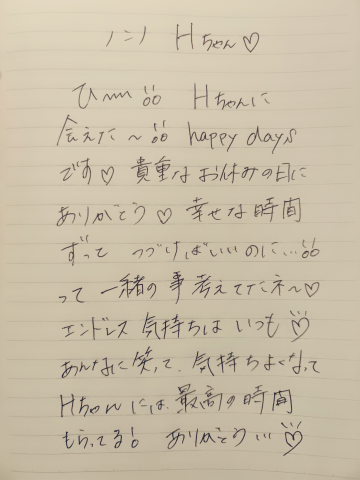 ハンノ Hちゃん♡
ひ〰!!。 Hちゃんに
会えた〜!!。 happy days
です♡ 貴重なお休みの日に
ありがとう♡ 幸せな時間
ずって つづけばいいのに...!!。
って 一緒の事 考えてたネ〜♡
エンドレス 気持ちは いつも♡
あんなに笑って、気持ちよくなって
Hちゃんには、最高の時間
もらってる! ありがとう...♡